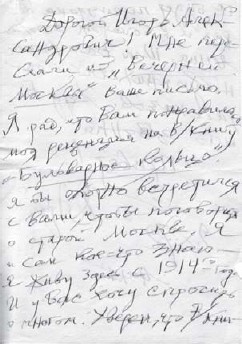 Дорогой Игорь Алек-
сандрович! Мне пере-
слали из „Вечерней
Москвы" Ваше письмо,
Я рад, что Вам понравилась
моя рецензия на в/книгу
„Бульварное кольцо".
Я бы охотно встретился
с Вами, чтобы поговорить
о старой Москве. Я
сам кое-что знаю—
я живу здесь с 1914 года.
И у Вас хочу спросить
о многом. Уверен, что